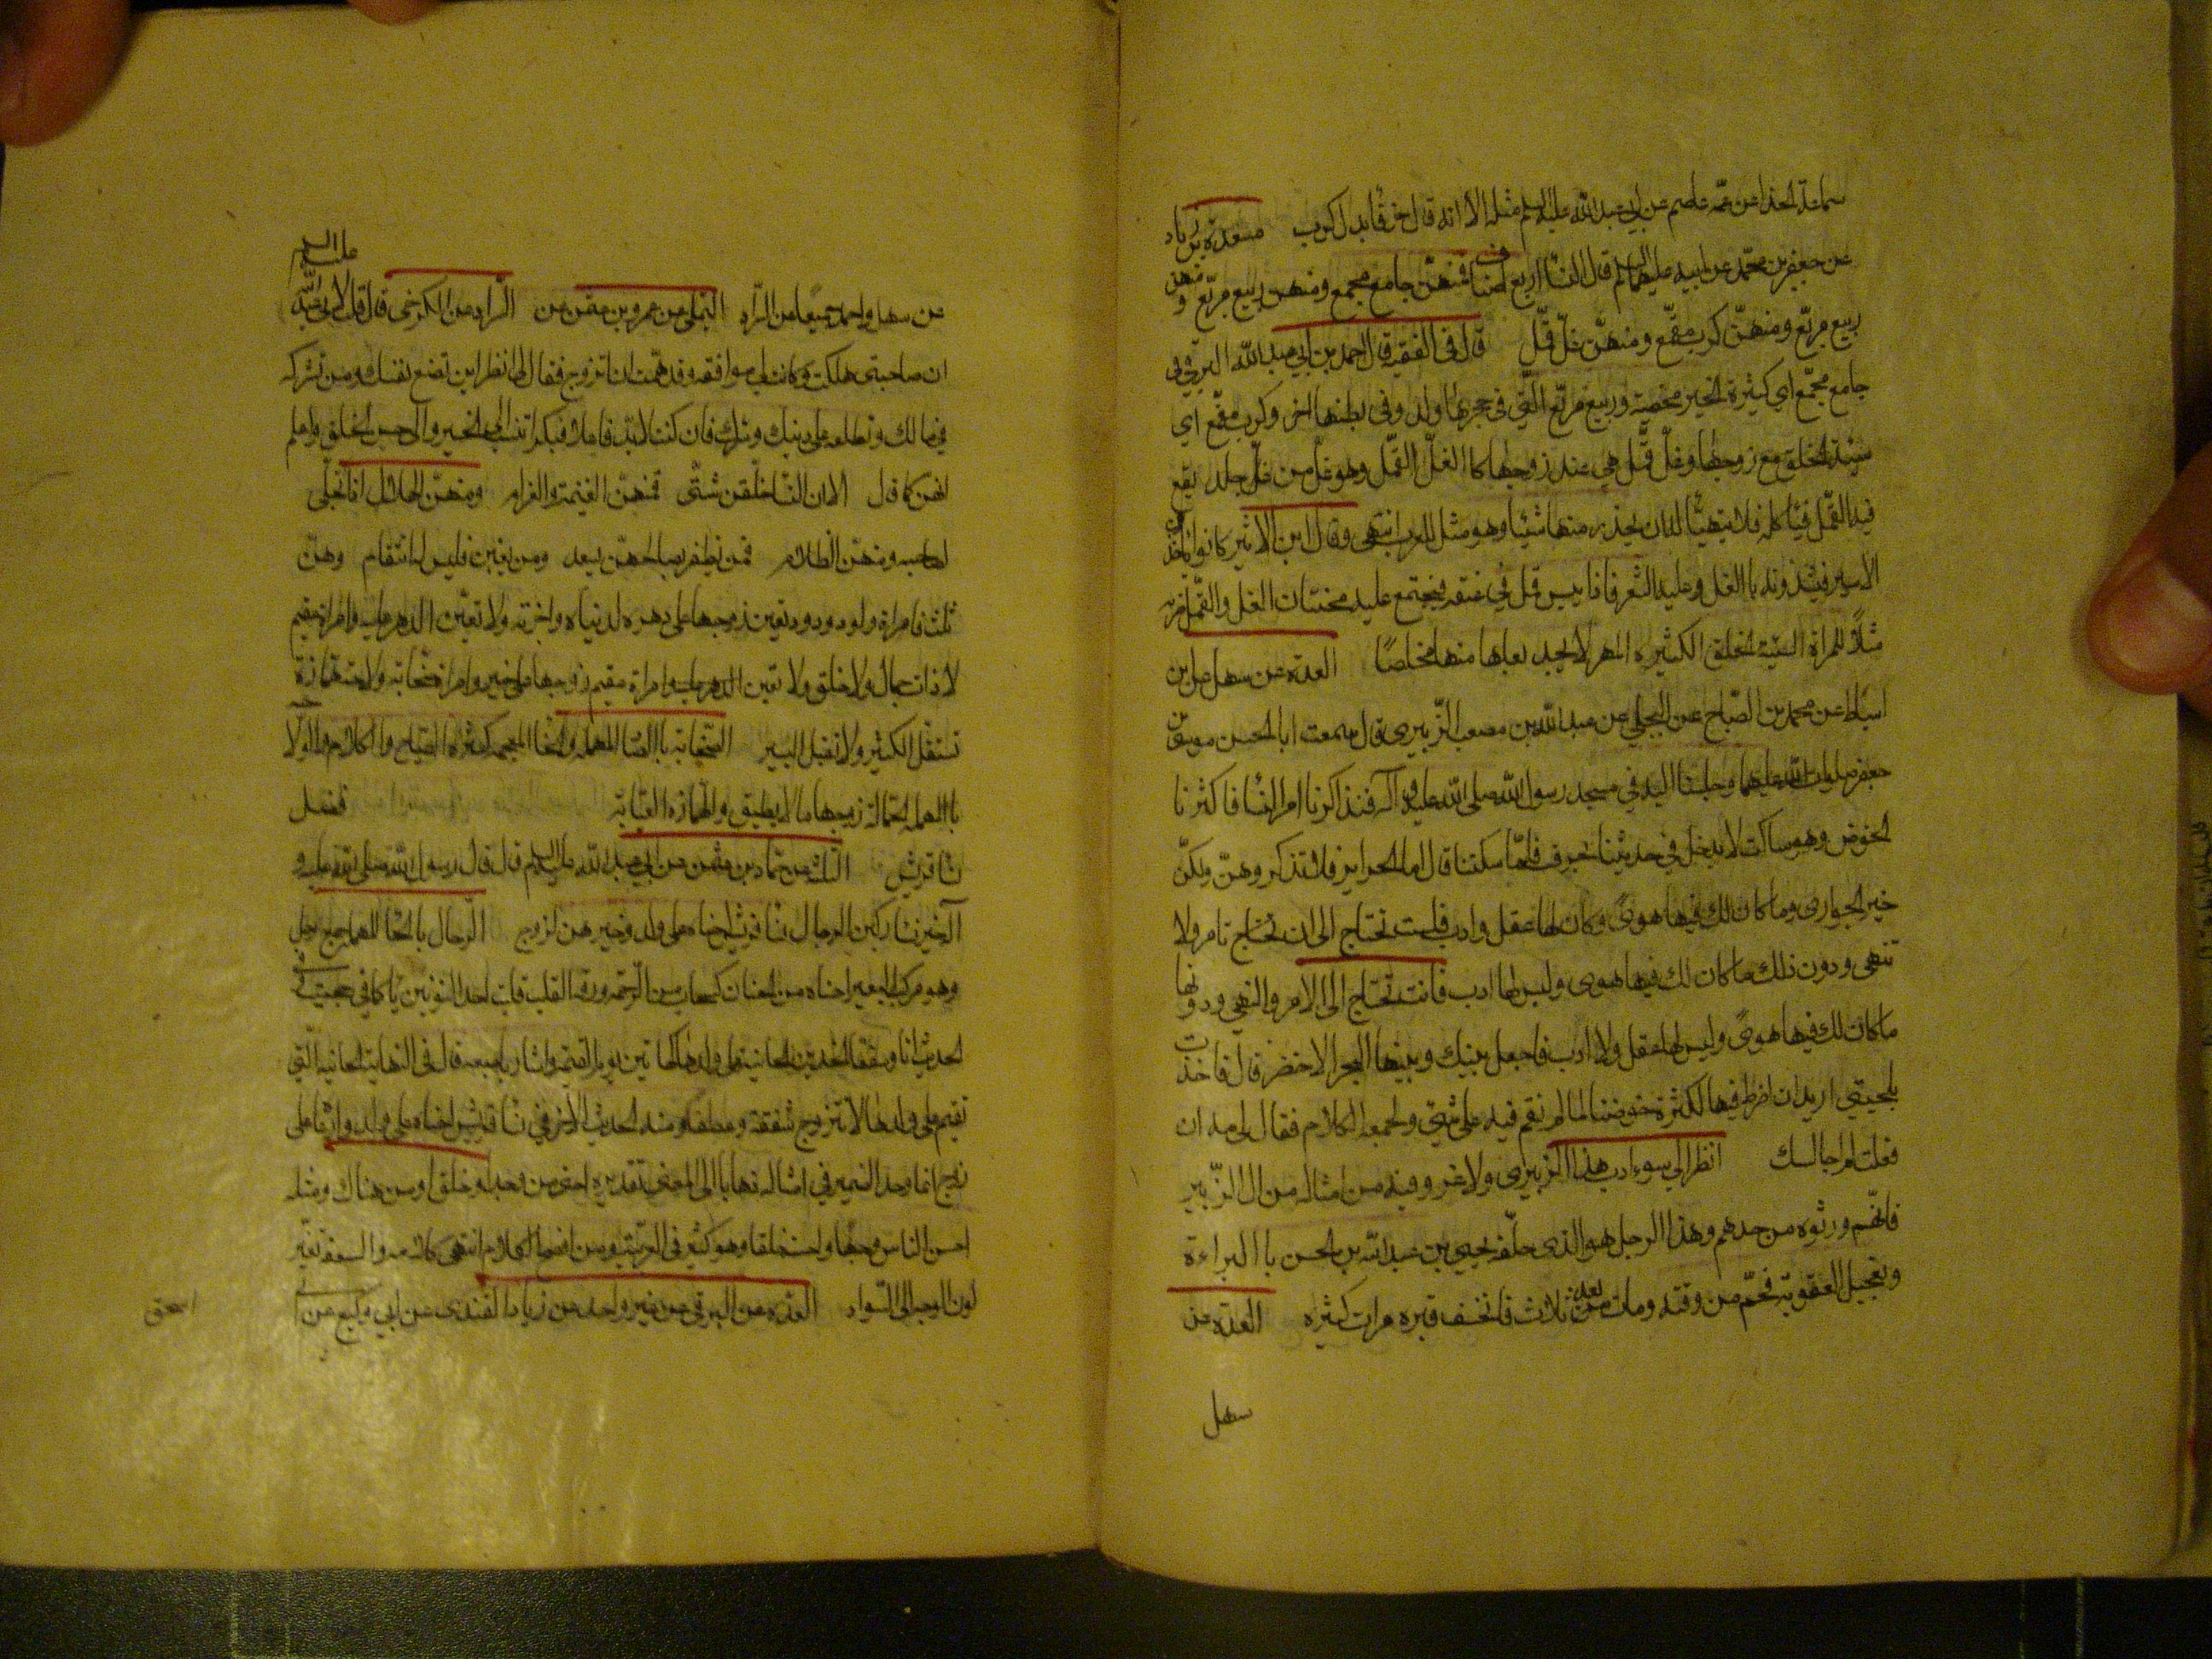 سماعة الحذا عن عمه عاصم عن ابي عبدالله عليه السلم مثله الا انه قال خرقا بدل كرب مسعدة بن زياد
عن جعفر بن محمد عن ابيه عليهما السلم قال النسا اربع اصناف فمنهن جامع مجمع ومنهن ربيع مربع و منهن
ربيع مربع ومنهن كرب مقمع ومنهن غل قمل قال في الفقيه قال احمد بن ابي عبد الله البرقي
جامع مجمع اي كثيرة الخير مخصبة وربيع مربع التي في حجرها ولد وفي بطنها اخر وكرب مقمع اي
سيئة الخلق مع زوجها وغل قمل هي عند زوجها كا الغل القمل وهو غل من جلد يقع
فيه القمل فياكله فلا يتهيأ له ان يحذر منها شيئا وهو مثل للعرب انتهى وقال ابن الاثير كانوا ياخذون
الاسير فيشدونه با القد وعليه الشعر فاذا يبس قمل في عنقه فيجتمع عليه محنتان الغل والقمل ضربه
مثلا للمراة السيئة الخلق الكثيرة المهر لا يجد بعلها منها مخلصا العدة عن سهل عن علي بن
اسباط عن محمد بن الصباح عن البجلي عن عبد الله بن مصعب الزبيري قال سمعت ابا الحسن موسى بن
جعفر صلوات الله عليهما وجلسنا اليه في مسجد رسول الله صلى الله عليه واله فتذاكرنا امر النسا فاكثرنا
الخوض وهو ساكت لا يدخل في حديثنا بحرف فلما سكتنا قال اما الحراير فلا تذكروهن ولكن
خير الجواري ما كان لك فيها هوى وكان لها عقل وادب فلست تحتاج الى ان تامر ولا
تنهى ودون ذلك ما كان لك فيها هوى وليس لها ادب فانت تحتاج الى الامر والنهي ودونها
ما كان لك فيها هوى وليس لها عقل ولا ادب فاجعل بينك وبينها البحر الاخضر قال فاخذت
بلحيتي اريد ان اضرط فيها لكثرة خوضنا لما لم نقم فيه على شيء ولجمعه الكلام فقال لي مه ان
فعلت لم اجالسك انظر الى سوء ادب هذا الزبيري ولا غرو فيه من امثاله من ال الزبير
فانهم ورثوه من جدهم وهذا الرجل هو الذي حلفه يحيى بن عبد الله بن الحسن با البراءة
وتعجيل العقوبة فحم من وقته ومات بعد ثلاث فانخسف قبره مرات كثيرة العدة عن
سهل
عن سهل واحمد جميعا عن السراد عن عمرو بن السراد عن الكرخي قال قلت لابي عبدالله عليه السلم
ان صاحبتي هلكت وكانت لي موافقة وقد هممت ان اتزوج فقال لي انظر اين تضع نفسك ومن تشركه
في مالك وتطلعه على دينك وسرك فان كنت لا بد فاعلا فبكرا تنسب الى الخير والى حسن الخلق واعلم
انهن كما قال الا ان النسا خلقن شتى فمنهن الغنيمة والغرام ومنهن الهلال اذا تجلى
لصاحبه ومنهن الظلام فمن يظفر بصالحهن يسعد ومن يغبن فليس له انتقام وهن
ثلث فامراة ولود ودود تعين زوجها على دهره لدنياه واخرته ولا تعين الدهر عليه وامراة عقيم
لا ذات جمال ولا خلق ولا تعين زوجها على خير وامراة صخابة ولاجة همازة
تستقل الكثير ولا تقبل اليسير الصخابة با الصاد المهملة والخا المعجمة كثيرة الصياح والكلام
زوجها ما لا يطيق والهمازة العيابة فضل
نسا قريش الثلثة عن حماد بن عثمن عن ابي عبد الله عليه السلم قال قال رسول الله صلى الله عليه و
آله خير نسا ركبن الرحال نسا قريش احناه على ولد وخيرهن لزوج الرحال با الحا المهملة جمع رحل
وهو مركب البعير احناه من الحنان كسحاب من الرحمة ورقة القلب
الحديث انا وسفعا الخدين الحانية على ولدها كهاتين يوم القيمة واشار باصبعيه قال في النهاية الحانية التي
تقيم على ولدها لا تتزوج شفقة وعطفا ومنه الحديث الاخر في نسا قريش احناه على ولد وارعاه على
زوج انما وحد الضمير في امثاله ذهابا الى المعنى تقديره احنى من وجد او خلق او من هناك ومثله
احسن الناس وجها واحسنه خلقا وهو كثير في العربية ومن افصح الكلام انتهى كلامه والسفعة تغير
لون الوجه الى السواد العدة عن البرقي عن غير واحد عن زياد القندي عن ابي وكيع عن ابي
اسحق